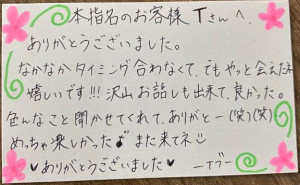 本指名のお客様 Tさんへ
ありがとうございました。
なかなかタイミング合わなくて、でもやっと会えたネ
嬉しいです!!! 沢山お話しも出来て、良かった。
色んなこと聞かせてくれて、ありがとー(笑)(笑)
めっちゃ楽しかった♪また来てネ
♥ありがとうございました♥